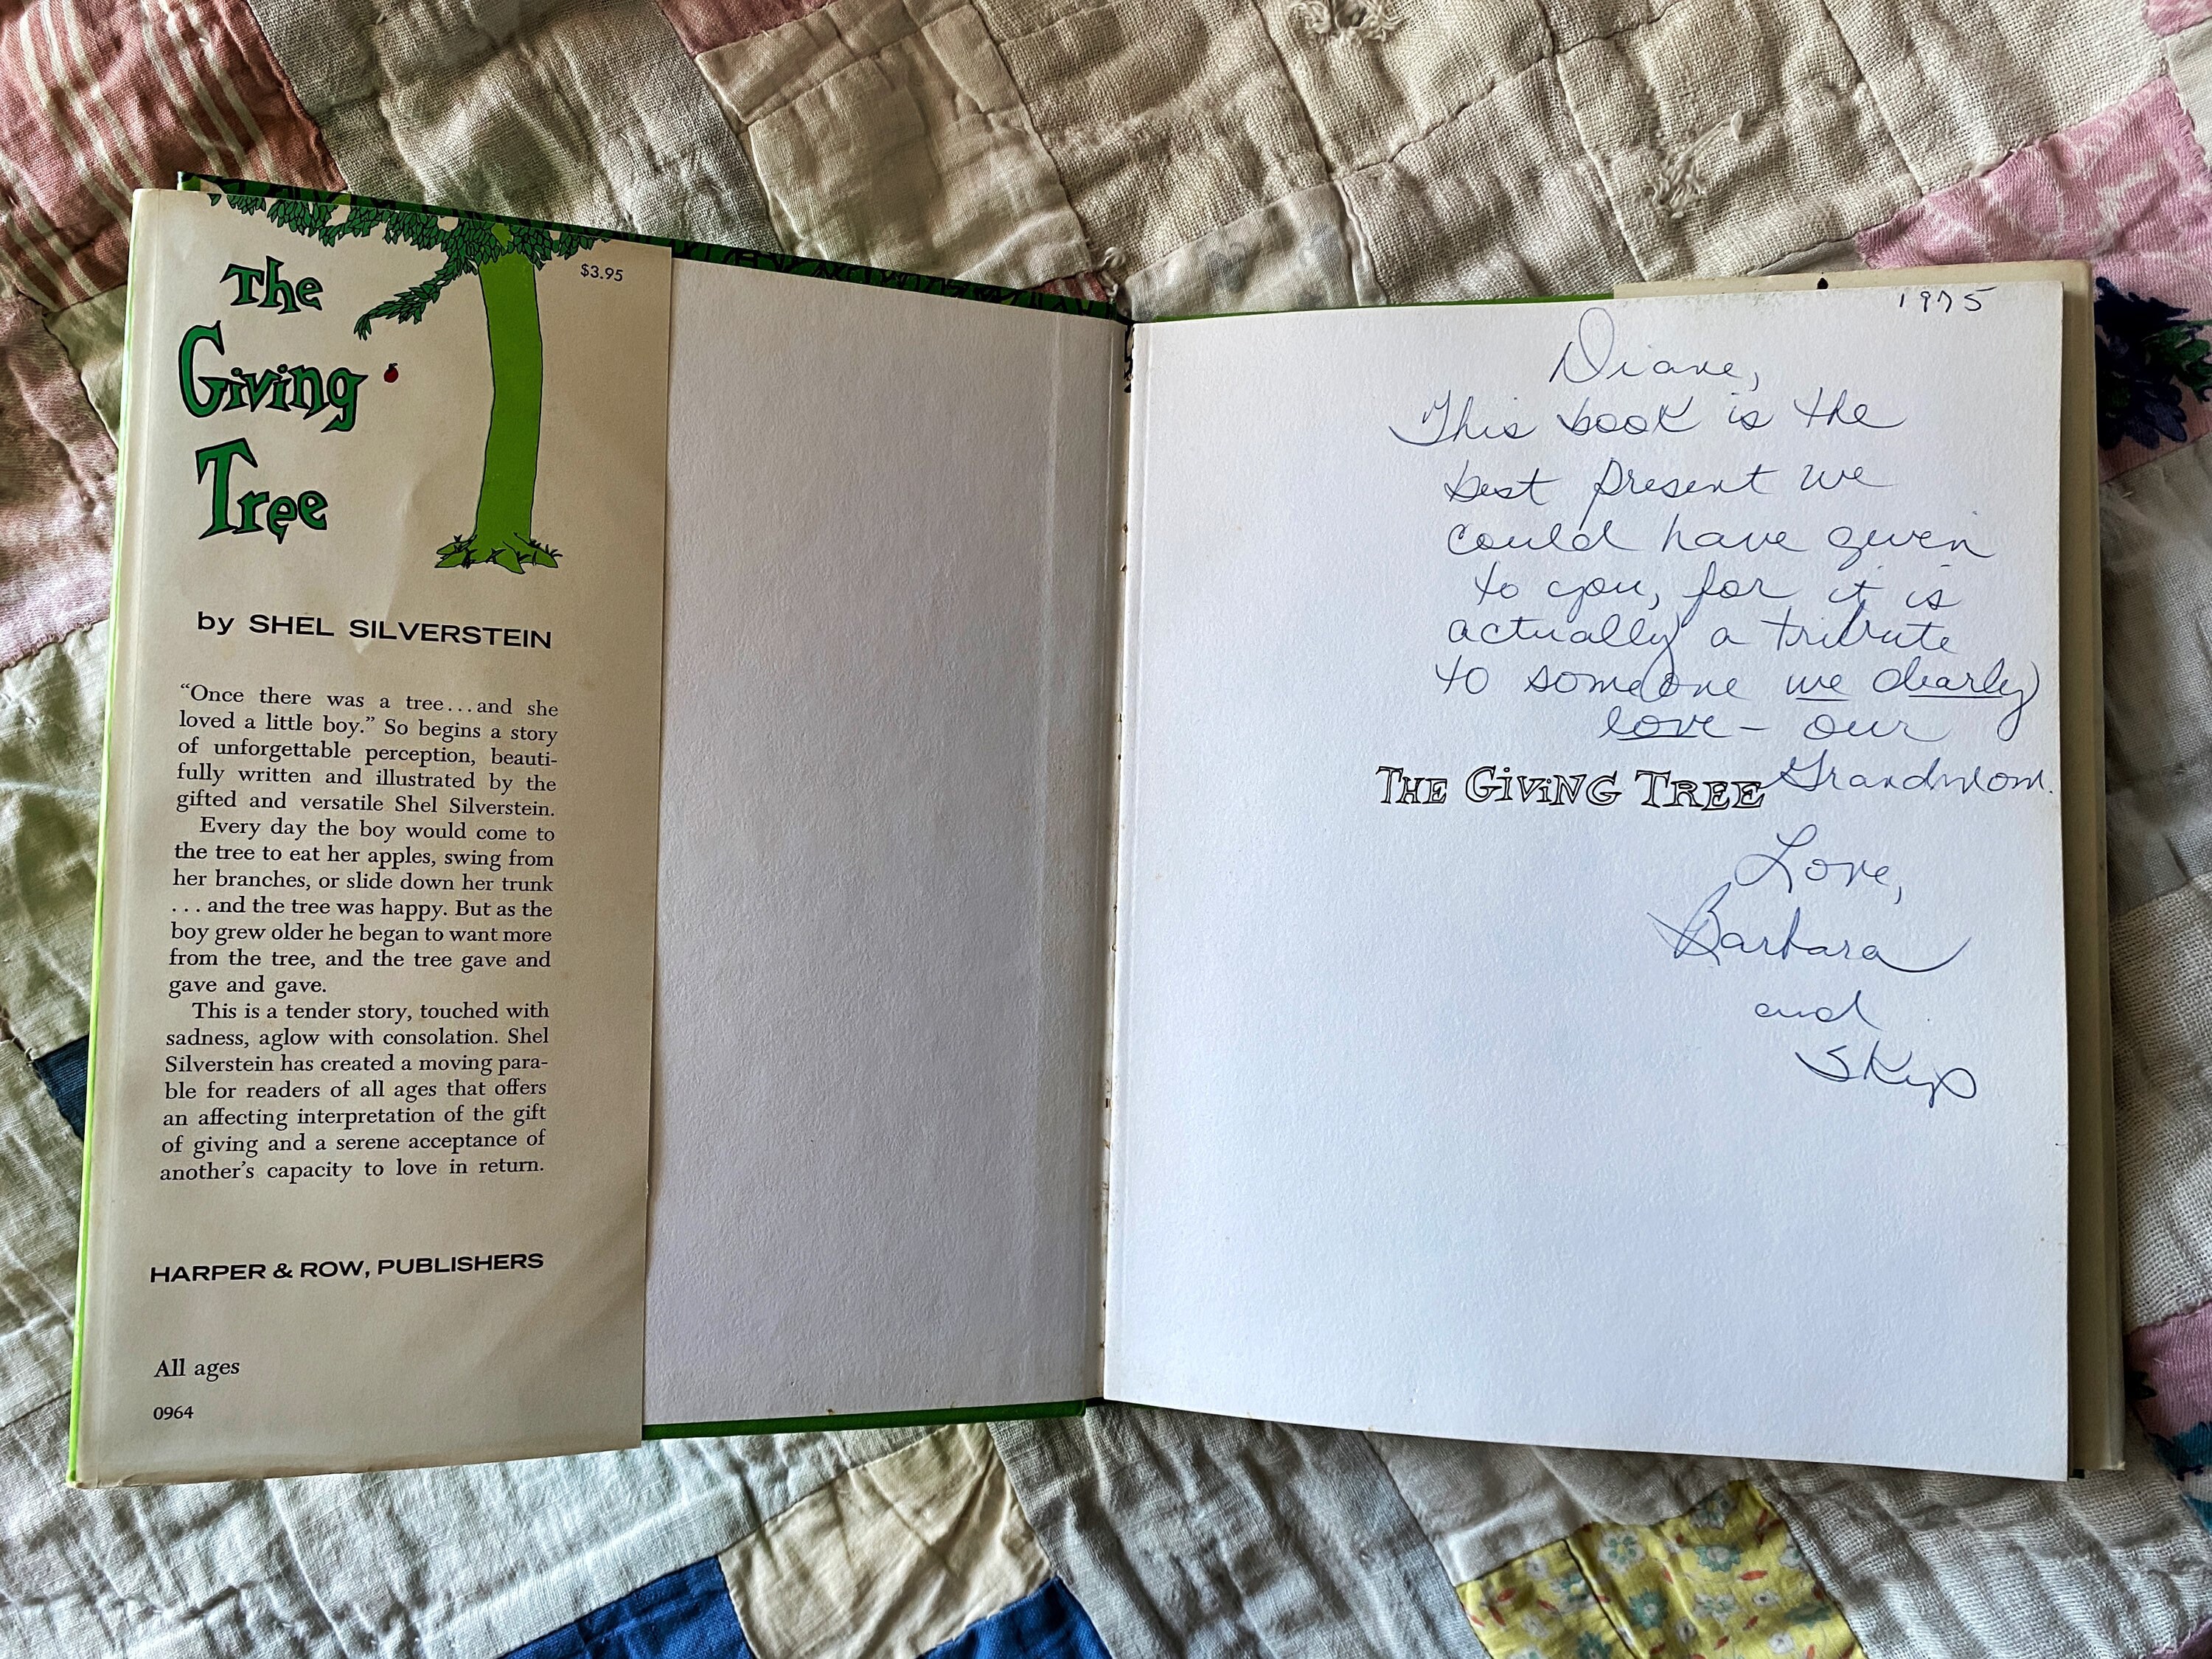 The
Giving
Tree
$3.95
by SHEL SILVERSTEIN
“Once there was a tree...and she
loved a little boy.” So begins a story
of unforgettable perception, beauti-
fully written and illustrated by the
gifted and versatile Shel Silverstein.
Every day the boy would come to
the tree to eat her apples, swing from
her branches, or slide down her trunk
...and the tree was happy. But as the
boy grew older he began to want more
from the tree, and the tree gave and
gave and gave.
This is a tender story, touched with
sadness, aglow with consolation. Shel
Silverstein has created a moving para-
ble for readers of all ages that offers
an affecting interpretation of the gift
of giving and a serene acceptance of
another’s capacity to love in return.
HARPER & ROW, PUBLISHERS
All ages
0964
1975
Diane,
This book is the
best present we
could have given
to you, for it is
actually a tribute
to someone we dearly
love – our
Grandmom.
THE GIVING TREE
Love,
Barbara
and
Skip